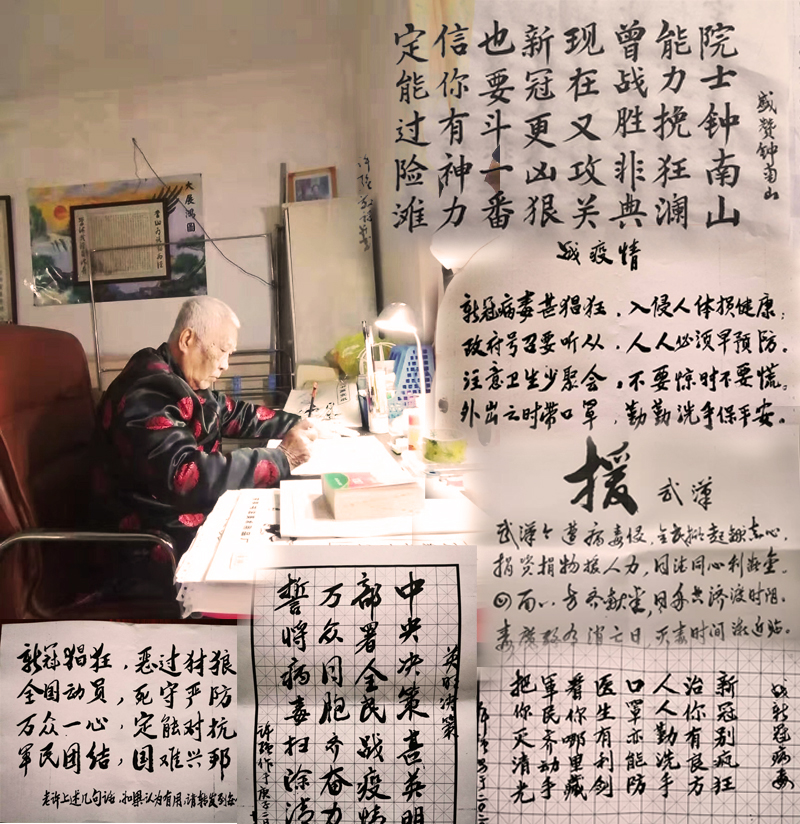 盛赞钟南山
院士钟南山
能力挽狂澜
曾战胜非典
现在又攻关
新冠更凶狠
也要斗一番
信你有神力
定能过险滩
大展鸿图
战疫情
新冠病毒甚猖狂，入侵人体损健康；
政府号召要听从，人人必须早预防。
注意卫生少聚会，不要惊时不要慌。
外出之时带口罩，勤勤洗手保平安。
援武汉
武汉今遭病毒侵，全民掀起
捐资捐物援人力，同法同心利断金。
四面八方齐献爱，同舟共济渡时阻。
毒魔
消亡日，灭毒时间渐近临。
英明决策
中央决策喜英明
部署全民战疫情
万众同胞齐奋力
誓将病毒扫除清
战新冠病毒
新冠别疯狂
治你有良方
人人勤洗手
口罩亦能防
医生有利剑
看你哪里藏
军民齐动手
把你灭清光
新冠猖狂，恶过豺狼
全国动员，死守严防
万众一心，定能对抗
军民团结，国难兴邦
老许上述几句话，如果认为有用，请转发到各